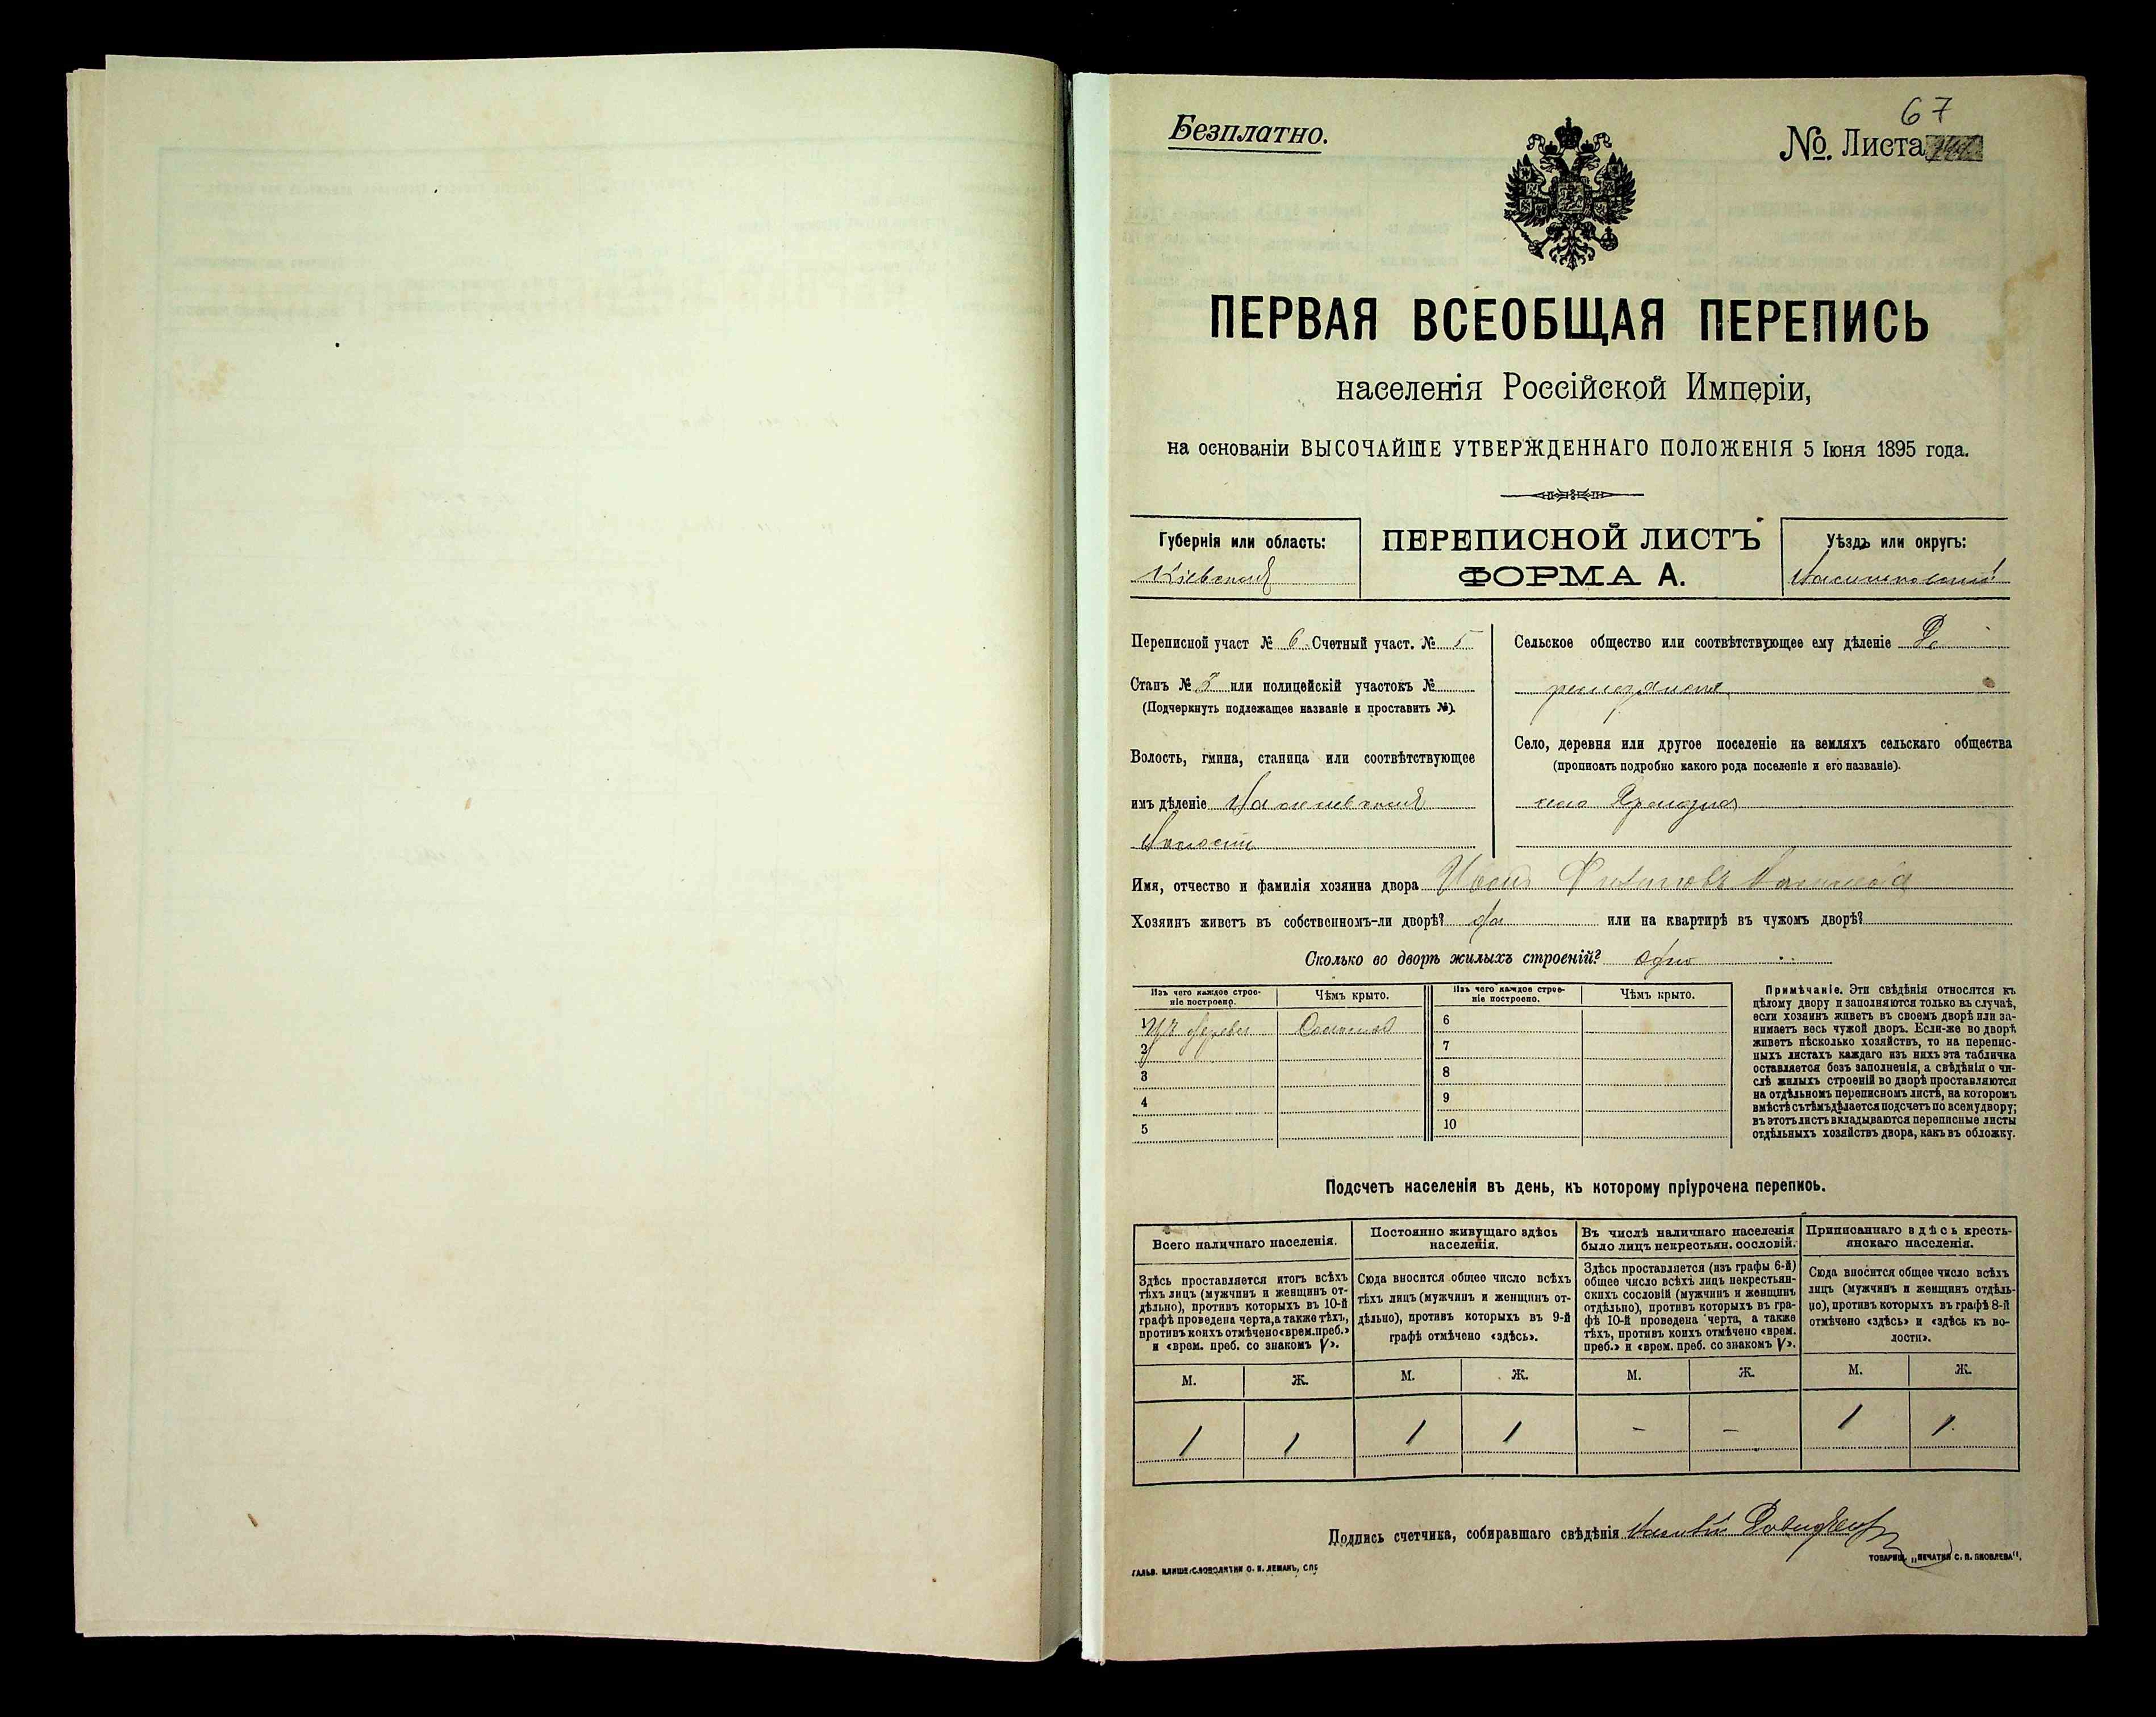 67
Безплатно.
№. Листа
ПЕРВАЯ ВСЕОБЩАЯ ПЕРЕПИСЬ
населенія Россійской Имперіи,
на основаніи ВЫСОЧАЙШЕ УТВЕРЖДЕННАГО ПОЛОЖЕНІЯ 5 Іюня 1895 года.
Губернія или область:
Кіевская
ПЕРЕПИСНОЙ ЛИСТЪ
ФОРМА А.
Уѣздъ или округъ:
Переписной участ № 6 Счетный участ. № 5
Станъ № 3 или полицейскій участокъ №
(Подчеркнуть подлежащее названіе и проставить №).
Волость, гмина, станица или соотвѣтствующее
имъ дѣленіе
волости
Сельское общество или соотвѣтствующее ему дѣленіе
Село, деревня или другое поселеніе на земляхъ сельскаго общества
(прописать подробно какого рода поселеніе и его названіе).
село
Имя, отчество и фамилія хозяина двора
Хозяинъ живетъ въ собственномъ-ли дворѣ? да или на квартирѣ въ чужомъ дворѣ?
Сколько во дворѣ жилыхъ строеній? одно
Изъ чего каждое строе-
ніе построено.
Чѣмъ крыто.
Изъ чего каждое строе-
ніе построено.
Чѣмъ крыто.
1 Изъ дерева Соломой
2
3
4
5
6
7
8
9
10
Примѣчаніе. Эти свѣдѣнія относятся къ
цѣлому двору и заполняются только въ случаѣ,
если хозяинъ живетъ въ своемъ дворѣ или за-
нимаетъ весь чужой дворъ. Если-же во дворѣ
живетъ нѣсколько хозяйствъ, то на перепис-
ныхъ листахъ каждаго изъ нихъ эта табличка
оставляется безъ заполненія, а свѣдѣнія о чи-
слѣ жилыхъ строеній во дворѣ проставляются
на отдѣльномъ переписномъ листѣ, на которомъ
вмѣстѣ съ тѣмъ дѣлается подсчетъ по всему двору;
въ этотъ листъ вкладываются переписные листы
отдѣльныхъ хозяйствъ двора, какъ въ обложку.
Подсчетъ населенія въ день, къ которому пріурочена перепись.
Всего наличнаго населенія.
Здѣсь проставляется итогъ всѣхъ
тѣхъ лицъ (мужчинъ и женщинъ от-
дѣльно), противъ которыхъ въ 10-й
графѣ проведена черта, а также тѣхъ,
противъ коихъ отмѣчено «врем. преб.»
и «врем. преб. со знакомъ V».
Постоянно живущаго здѣсь
населенія.
Сюда вносится общее число всѣхъ
тѣхъ лицъ (мужчинъ и женщинъ от-
дѣльно), противъ которыхъ въ 9-й
графѣ отмѣчено «здѣсь».
Въ числѣ наличнаго населенія
было лицъ некрестьян. сословій.
Здѣсь проставляется (изъ графы 6-й)
общее число всѣхъ лицъ некрестьян-
скихъ сословій (мужчинъ и женщинъ
отдѣльно), противъ которыхъ въ гра-
фѣ 10-й проведена черта, а также
тѣхъ, противъ коихъ отмѣчено «врем.
преб.» и «врем. преб. со знакомъ V».
Приписаннаго здѣсь кресть-
янскаго населенія.
Сюда вносится общее число всѣхъ
лицъ (мужчинъ и женщинъ отдѣль-
но), противъ которыхъ въ графѣ 8-й
отмѣчено «здѣсь» и «здѣсь къ во-
лости».
М. Ж. М. Ж. М. Ж. М. Ж.
1 1 1 1 - - 1 1
Подпись счетчика, собиравшаго свѣдѣнія
ГАЛЬВ. КЛИШЕ СЛОВОЛИТНИ О. И. ЛЕМАНЪ, СПБ
ТОВАРИЩ. „ПЕЧАТНЯ С. П. ЯКОВЛЕВА“.